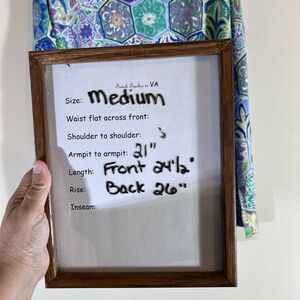 VA
Size: Medium
Waist flat across front:
Shoulder to shoulder:
Armpit to armpit: 21"
Length: Front 24 1/2"
Rise: Back 26"
Inseam: